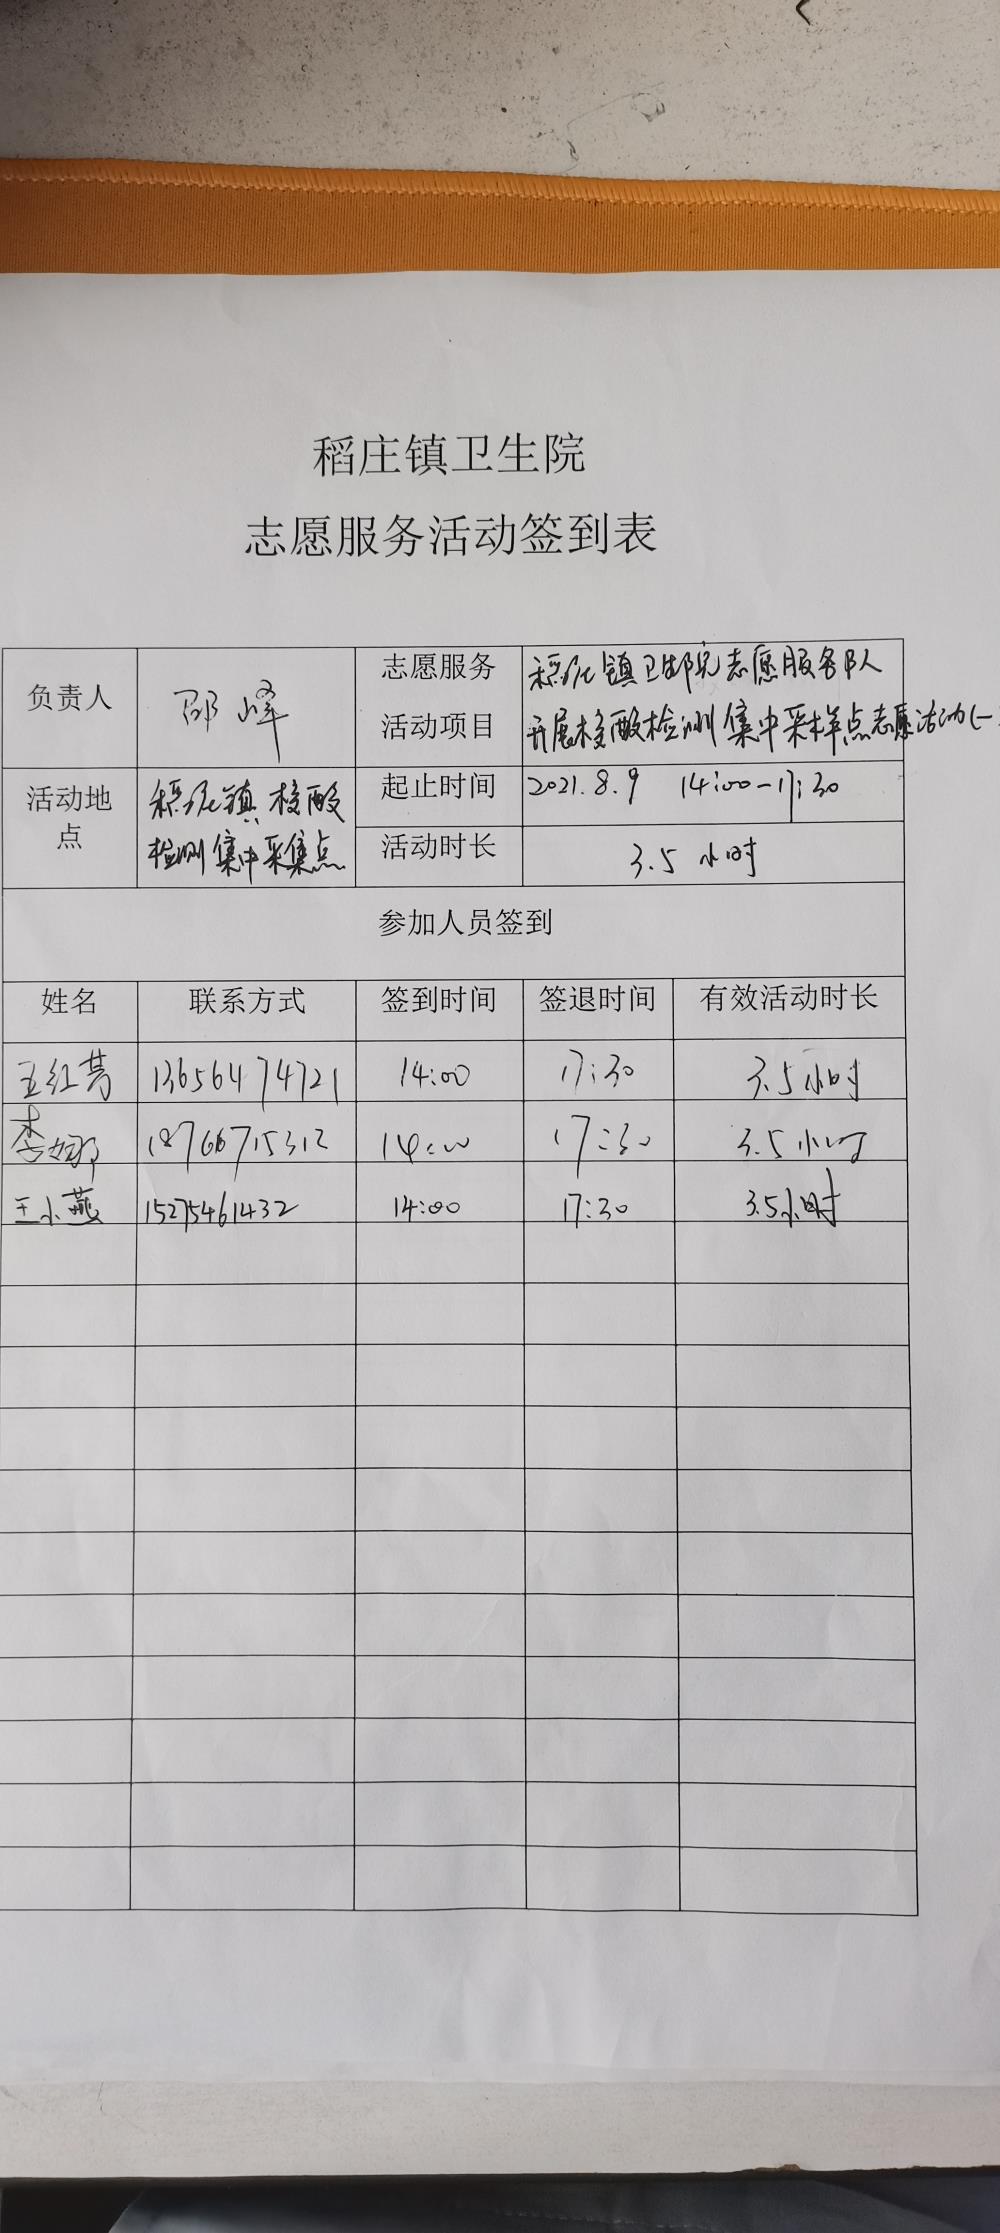 稻庄镇卫生院
志愿服务活动签到表
负责人 邵峰 志愿服务活动项目 稻庄镇卫生院志愿服务队
开展核酸检测集中采样点志愿活动(一
活动地点 稻庄镇核酸
检测集中采集点
起止时间 2021.8.9 14:00-17:30
活动时长 3.5小时
参加人员签到
姓名 联系方式 签到时间 签退时间 有效活动时长
王红芳 13656474721 14:00 17:30 3.5小时
李娜 18766715312 14:00 17:30 3.5小时
王小燕 15275461432 14:00 17:30 3.5小时